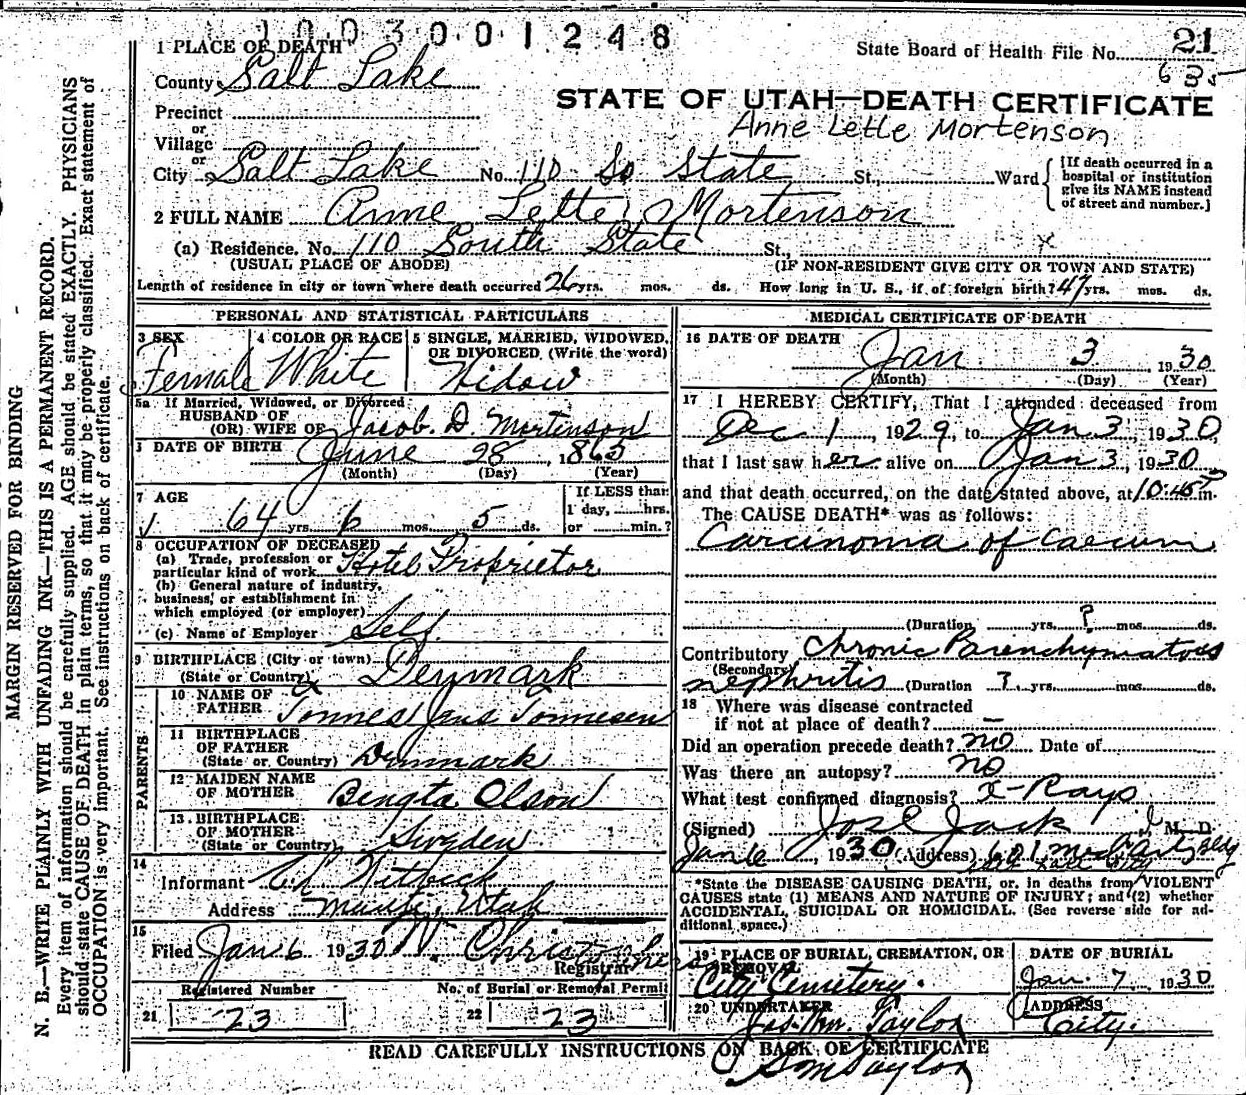 1003001248
1 PLACE OF DEATH
State Board of Health File No. 21
County Salt Lake
635
STATE OF UTAH—DEATH CERTIFICATE
Precinct
or
Village
Anne Lette Mortenson
or
City Salt Lake No. 110 So State St., Ward
{If death occurred in a
hospital or institution
give its NAME instead
of street and number.}
2 FULL NAME Anne Lette Mortenson
(a) Residence. No. 110 South State St.,
(USUAL PLACE OF ABODE) (IF NON-RESIDENT GIVE CITY OR TOWN AND STATE)
Length of residence in city or town where death occurred 26 yrs. mos. ds. How long in U. S., if of foreign birth? 47 yrs. mos. ds.
PERSONAL AND STATISTICAL PARTICULARS
3 SEX 4 COLOR OR RACE 5 SINGLE, MARRIED, WIDOWED,
OR DIVORCED (Write the word)
Female White Widow
5a If Married, Widowed, or Divorced
HUSBAND OF
(OR) WIFE OF Jacob D. Mortenson
DATE OF BIRTH June 28, 1865
(Month) (Day) (Year)
7 AGE
64 yrs 6 mos. 5 ds.
If LESS than
1 day, hrs.
or min.?
8 OCCUPATION OF DECEASED
(a) Trade, profession or
particular kind of work Hotel Proprietor
(b) General nature of industry,
business, or establishment in
which employed (or employer)
(c) Name of Employer Self
9 BIRTHPLACE (City or town)
(State or Country) Denmark
PARENTS
10 NAME OF
FATHER Tonnes Jans Tonnesen
11 BIRTHPLACE
OF FATHER
(State or Country) Denmark
12 MAIDEN NAME
OF MOTHER Bengta Olson
13 BIRTHPLACE
OF MOTHER
(State or Country) Sweden
14
Informant Witbeck
Address Manti, Utah
15
Filed Jan 6 1930
Registrar
Registered Number No. of Burial or Removal Permit
21 23 22 23
MEDICAL CERTIFICATE OF DEATH
16 DATE OF DEATH
Jan 3, 1930
(Month) (Day) (Year)
17 I HEREBY CERTIFY, That I attended deceased from
Dec 1, 1929, to Jan 3, 1930,
that I last saw her alive on Jan 3, 1930
and that death occurred, on the date stated above, at 10:45 P m.
The CAUSE DEATH* was as follows:
Carcinoma of Caecum
(Duration yrs. ? mos. ds.
Contributory Chronic Parenchymatous
(Secondary)
nephritis (Duration ? yrs. mos. ds.
18 Where was disease contracted
if not at place of death? —
Did an operation precede death? no Date of
Was there an autopsy? no
What test confirmed diagnosis? X-Rays
(Signed) Jos E Jack M. D.
Jan 6, 1930 (Address) 601 Bldg
*State the DISEASE CAUSING DEATH, or, in deaths from VIOLENT
CAUSES state (1) MEANS AND NATURE OF INJURY; and (2) whether
ACCIDENTAL, SUICIDAL OR HOMICIDAL. (See reverse side for ad-
ditional space.)
19 PLACE OF BURIAL, CREMATION, OR
REMOVAL
City Cemetery.
DATE OF BURIAL
Jan. 7, 1930
20 UNDERTAKER
Jos. Wm. Taylor
ADDRESS
City.
READ CAREFULLY INSTRUCTIONS ON BACK OF CERTIFICATE
S M Taylor
MARGIN RESERVED FOR BINDING
N. B.—WRITE PLAINLY WITH UNFADING INK—THIS IS A PERMANENT RECORD.
Every item of information should be carefully supplied. AGE should be stated EXACTLY. PHYSICIANS
should state CAUSE OF DEATH in plain terms, so that it may be properly classified. Exact statement of
OCCUPATION is very important. See instructions on back of certificate.